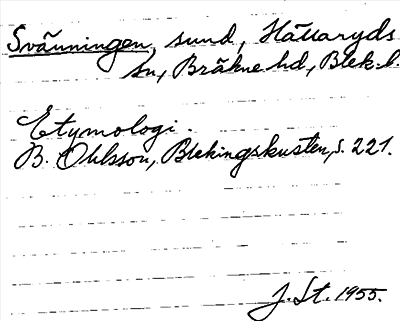 Svänningen, sund, Hällaryds
sn, Bräkne hd, Blek. l.
Etymologi.
B. Ohlsson, Blekingskusten, s. 221.
J. St. 1955.